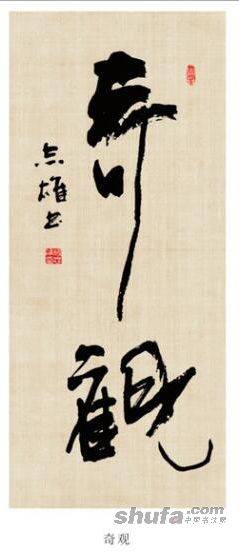 奇觀
志雄书
shufa.com
中国书法网
奇观